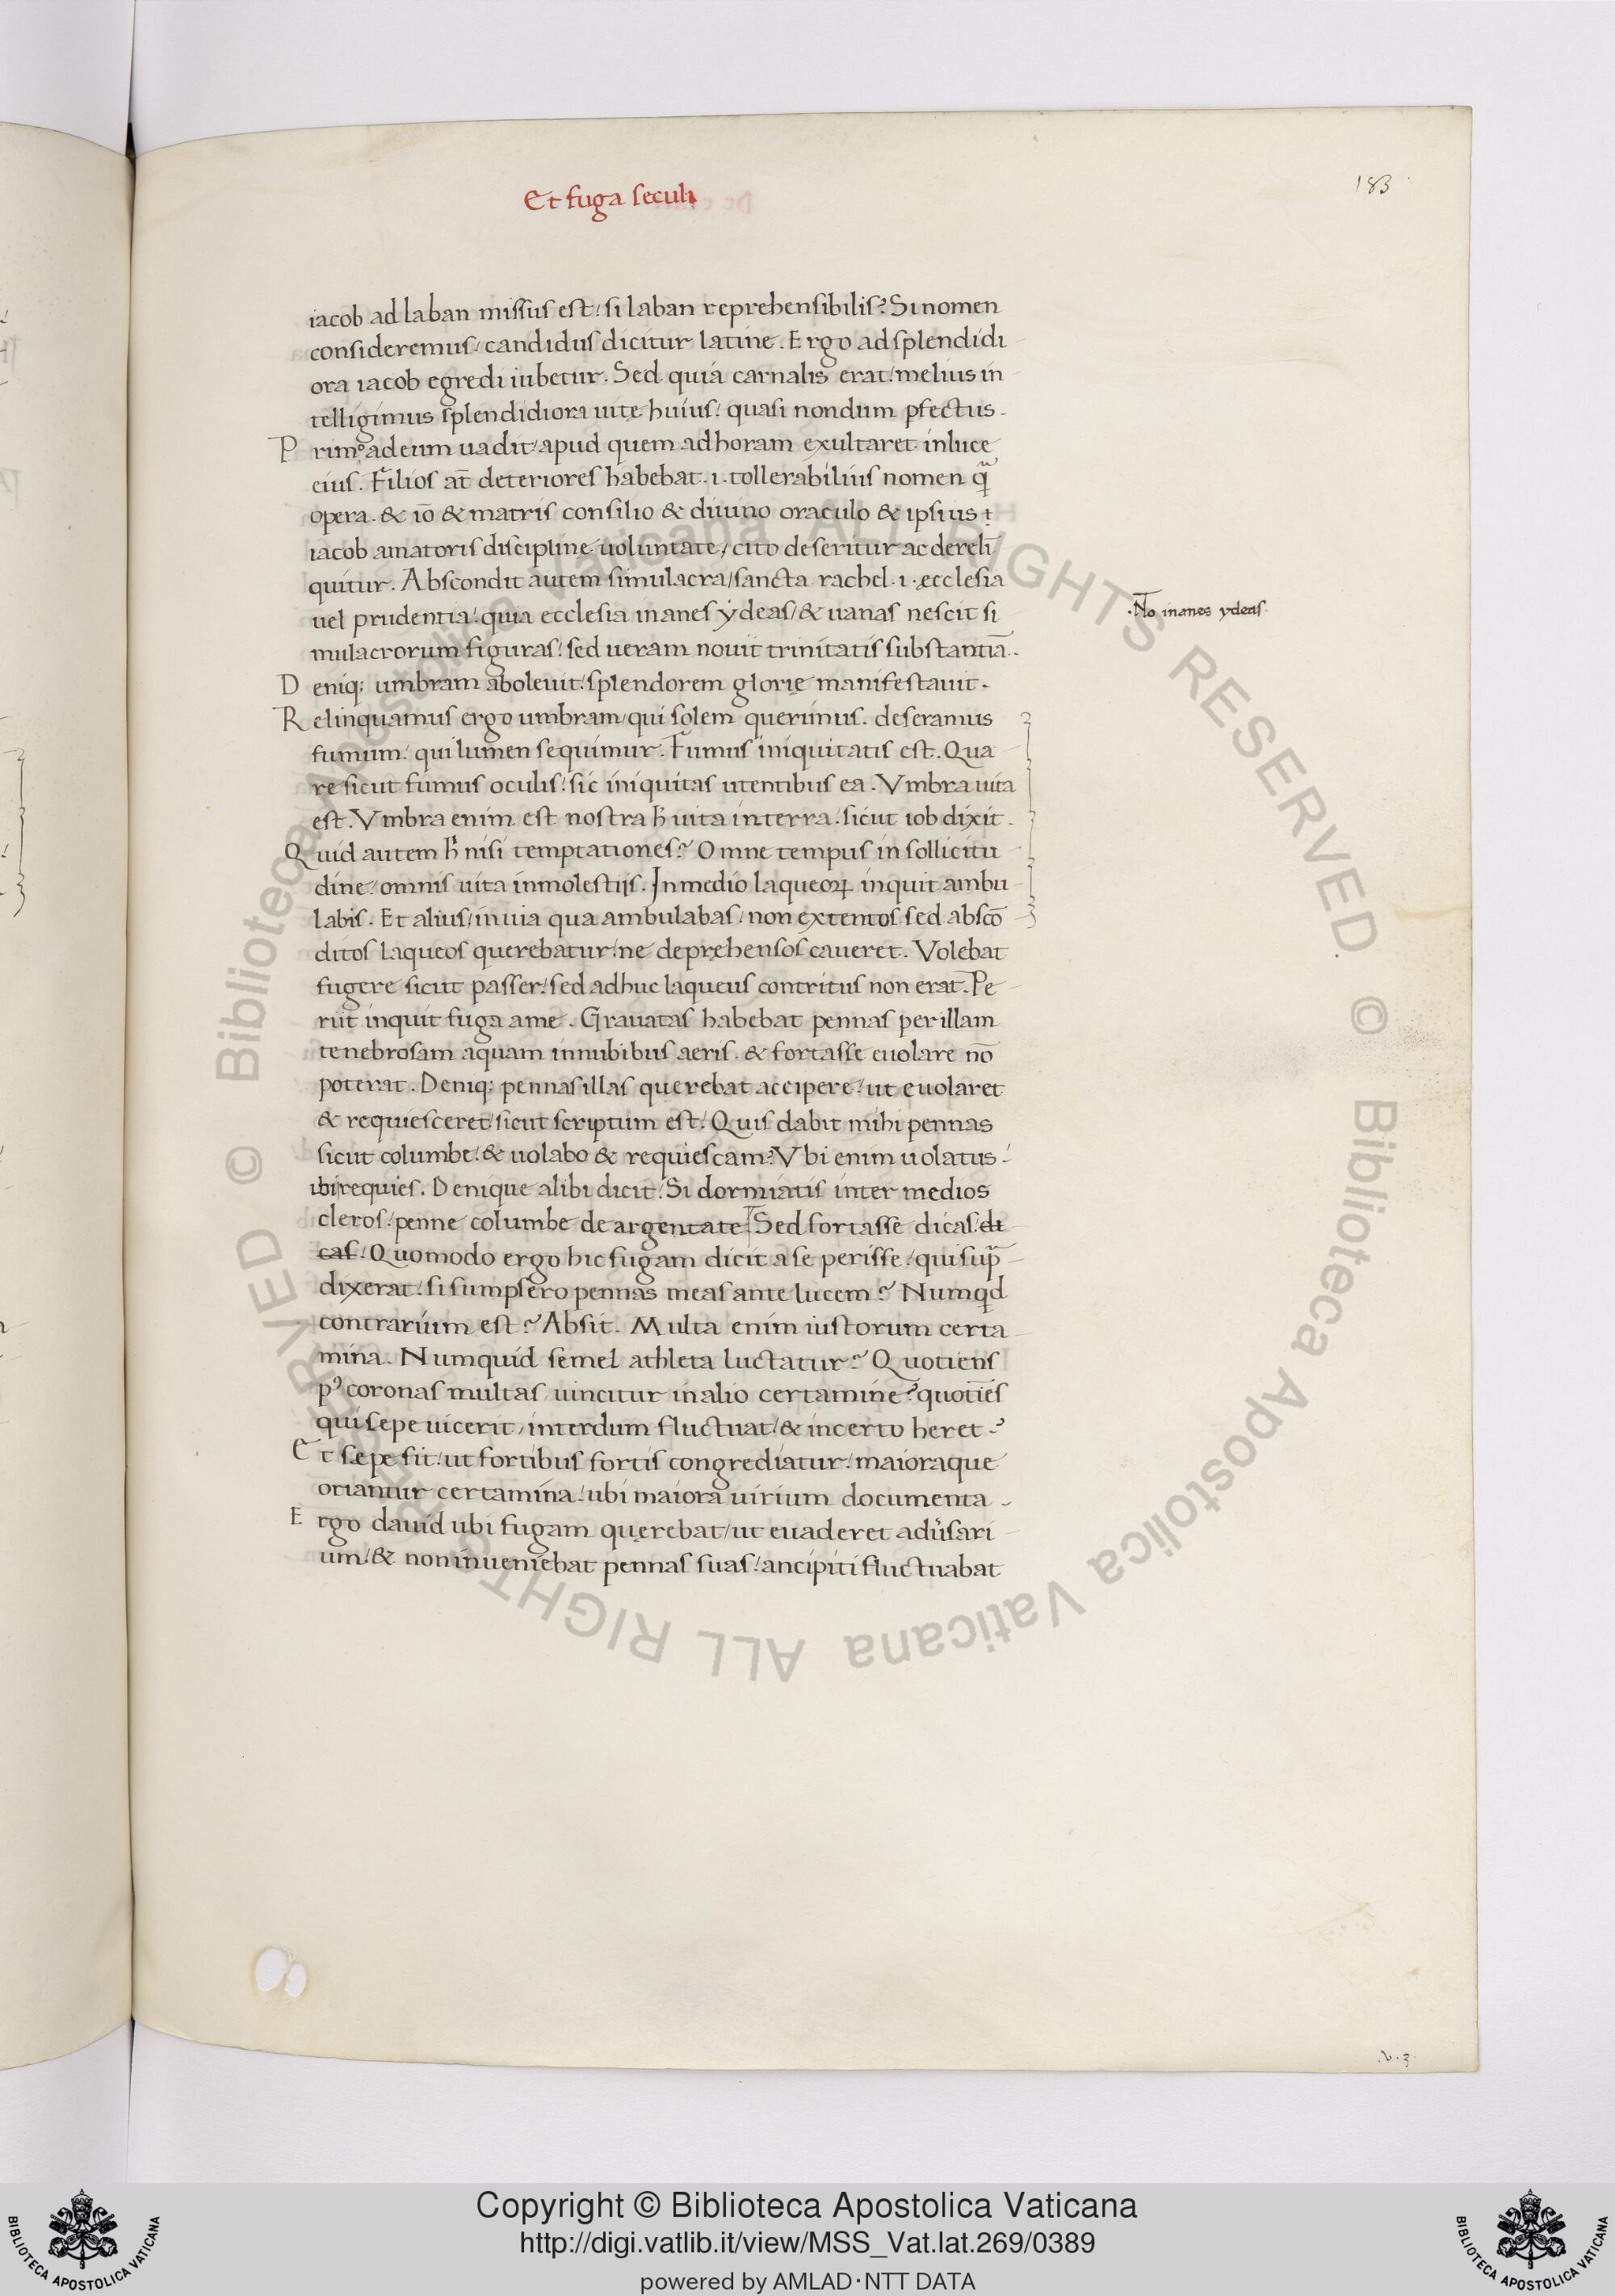 Et fuga seculi
183
iacob ad laban missus est / si laban reprehensibilis? Si nomen
consideremus / candidus dicitur latine. Ergo ad splendidi
ora iacob egredi iubetur. Sed quia carnalis erat / melius in
telligimus splendidiora uitę huius / quasi nondum ꝑfectus.
Primo ad eum uadit / apud quem ad horam exultaret in luce
eius. Filios at̄ deteriores habebat .i. tollerabilius nomen
opera. & iō & matris consilio & diuino oraculo & ipsius
iacob amatoris disciplinę uoluntate / cito deseritur ac dereli
quitur. Abscondit autem simulacra / sancta rachel .i. ęcclesia
uel prudentia / quia ecclesia inanes ẏdeas / & uanas nescit si
mulacrorum figuras / sed ueram nouit trinitatis substantiā.
Deniq; umbram aboleuit / splendorem glorię manifestauit.
Relinquamus ergo umbram / qui solem querimus. deseramus
fumum / qui lumen sequimur. Fumus iniquitatis est. Qua
re sicut fumus oculis / sic iniquitas utentibus ea. Vmbra uita
est. Vmbra enim est nostra h̄ uita in terra / sicut iob dixit.
Quid autem h̄ nisi temptationes? Omne tempus in sollicitu
dine / omnis uita in molestijs. In medio laqueoꝝ inquit ambu
labis. Et alius / in uia qua ambulabas / non extentos sed abscō
ditos laqueos querebatur / ne deprehensos caueret. Volebat
fugere sicut passer / sed adhuc laqueus contritus non erat. Pe
riit inquit fuga a me. Grauatas habebat pennas per illam
tenebrosam aquam in nubibus aeris. & fortasse euolare nō
poterat. Deniq; pennas illas querebat accipere / ut euolaret
& requiesceret / sicut scriptum est / Quis dabit mihi pennas
sicut columbe / & uolabo & requiescam? Vbi enim uolatus /
ibi requies. Denique alibi dicit / Si dormiatis inter medios
cleros / penne columbe deargentate. Sed fortasse dicas / di
cas / Quomodo ergo hic fugam dicit a se perisse / qui sup̄
dixerat / si sumpsero pennas meas ante lucem? Numqd
contrarium est? Absit. Multa enim iustorum certa
mina. Numquid semel athleta luctatur? Quotiens
pꝰ coronas multas / uincitur in alio certamine? quotiēs
qui sepe uicerit / interdum fluctuat / & incerto heret?
Et sępe fit / ut fortibus fortis congrediatur / maioraque
oriantur certamina / ubi maiora uirium documenta.
Ergo dauid ubi fugam quęrebat / ut euaderet adu̓sari
um / & non inueniebat pennas suas / ancipiti fluctuabat
.No inanes ydeas.
Copyright © Biblioteca Apostolica Vaticana
http://digi.vatlib.it/view/MSS_Vat.lat.269/0389
powered by AMLAD·NTT DATA
BIBLIOTECA APOSTOLICA VATICANA
BIBLIOTECA APOSTOLICA VATICANA
© Biblioteca Apostolica Vaticana ALL RIGHTS RESERVED
© Biblioteca Apostolica Vaticana ALL RIGHTS RESERVED